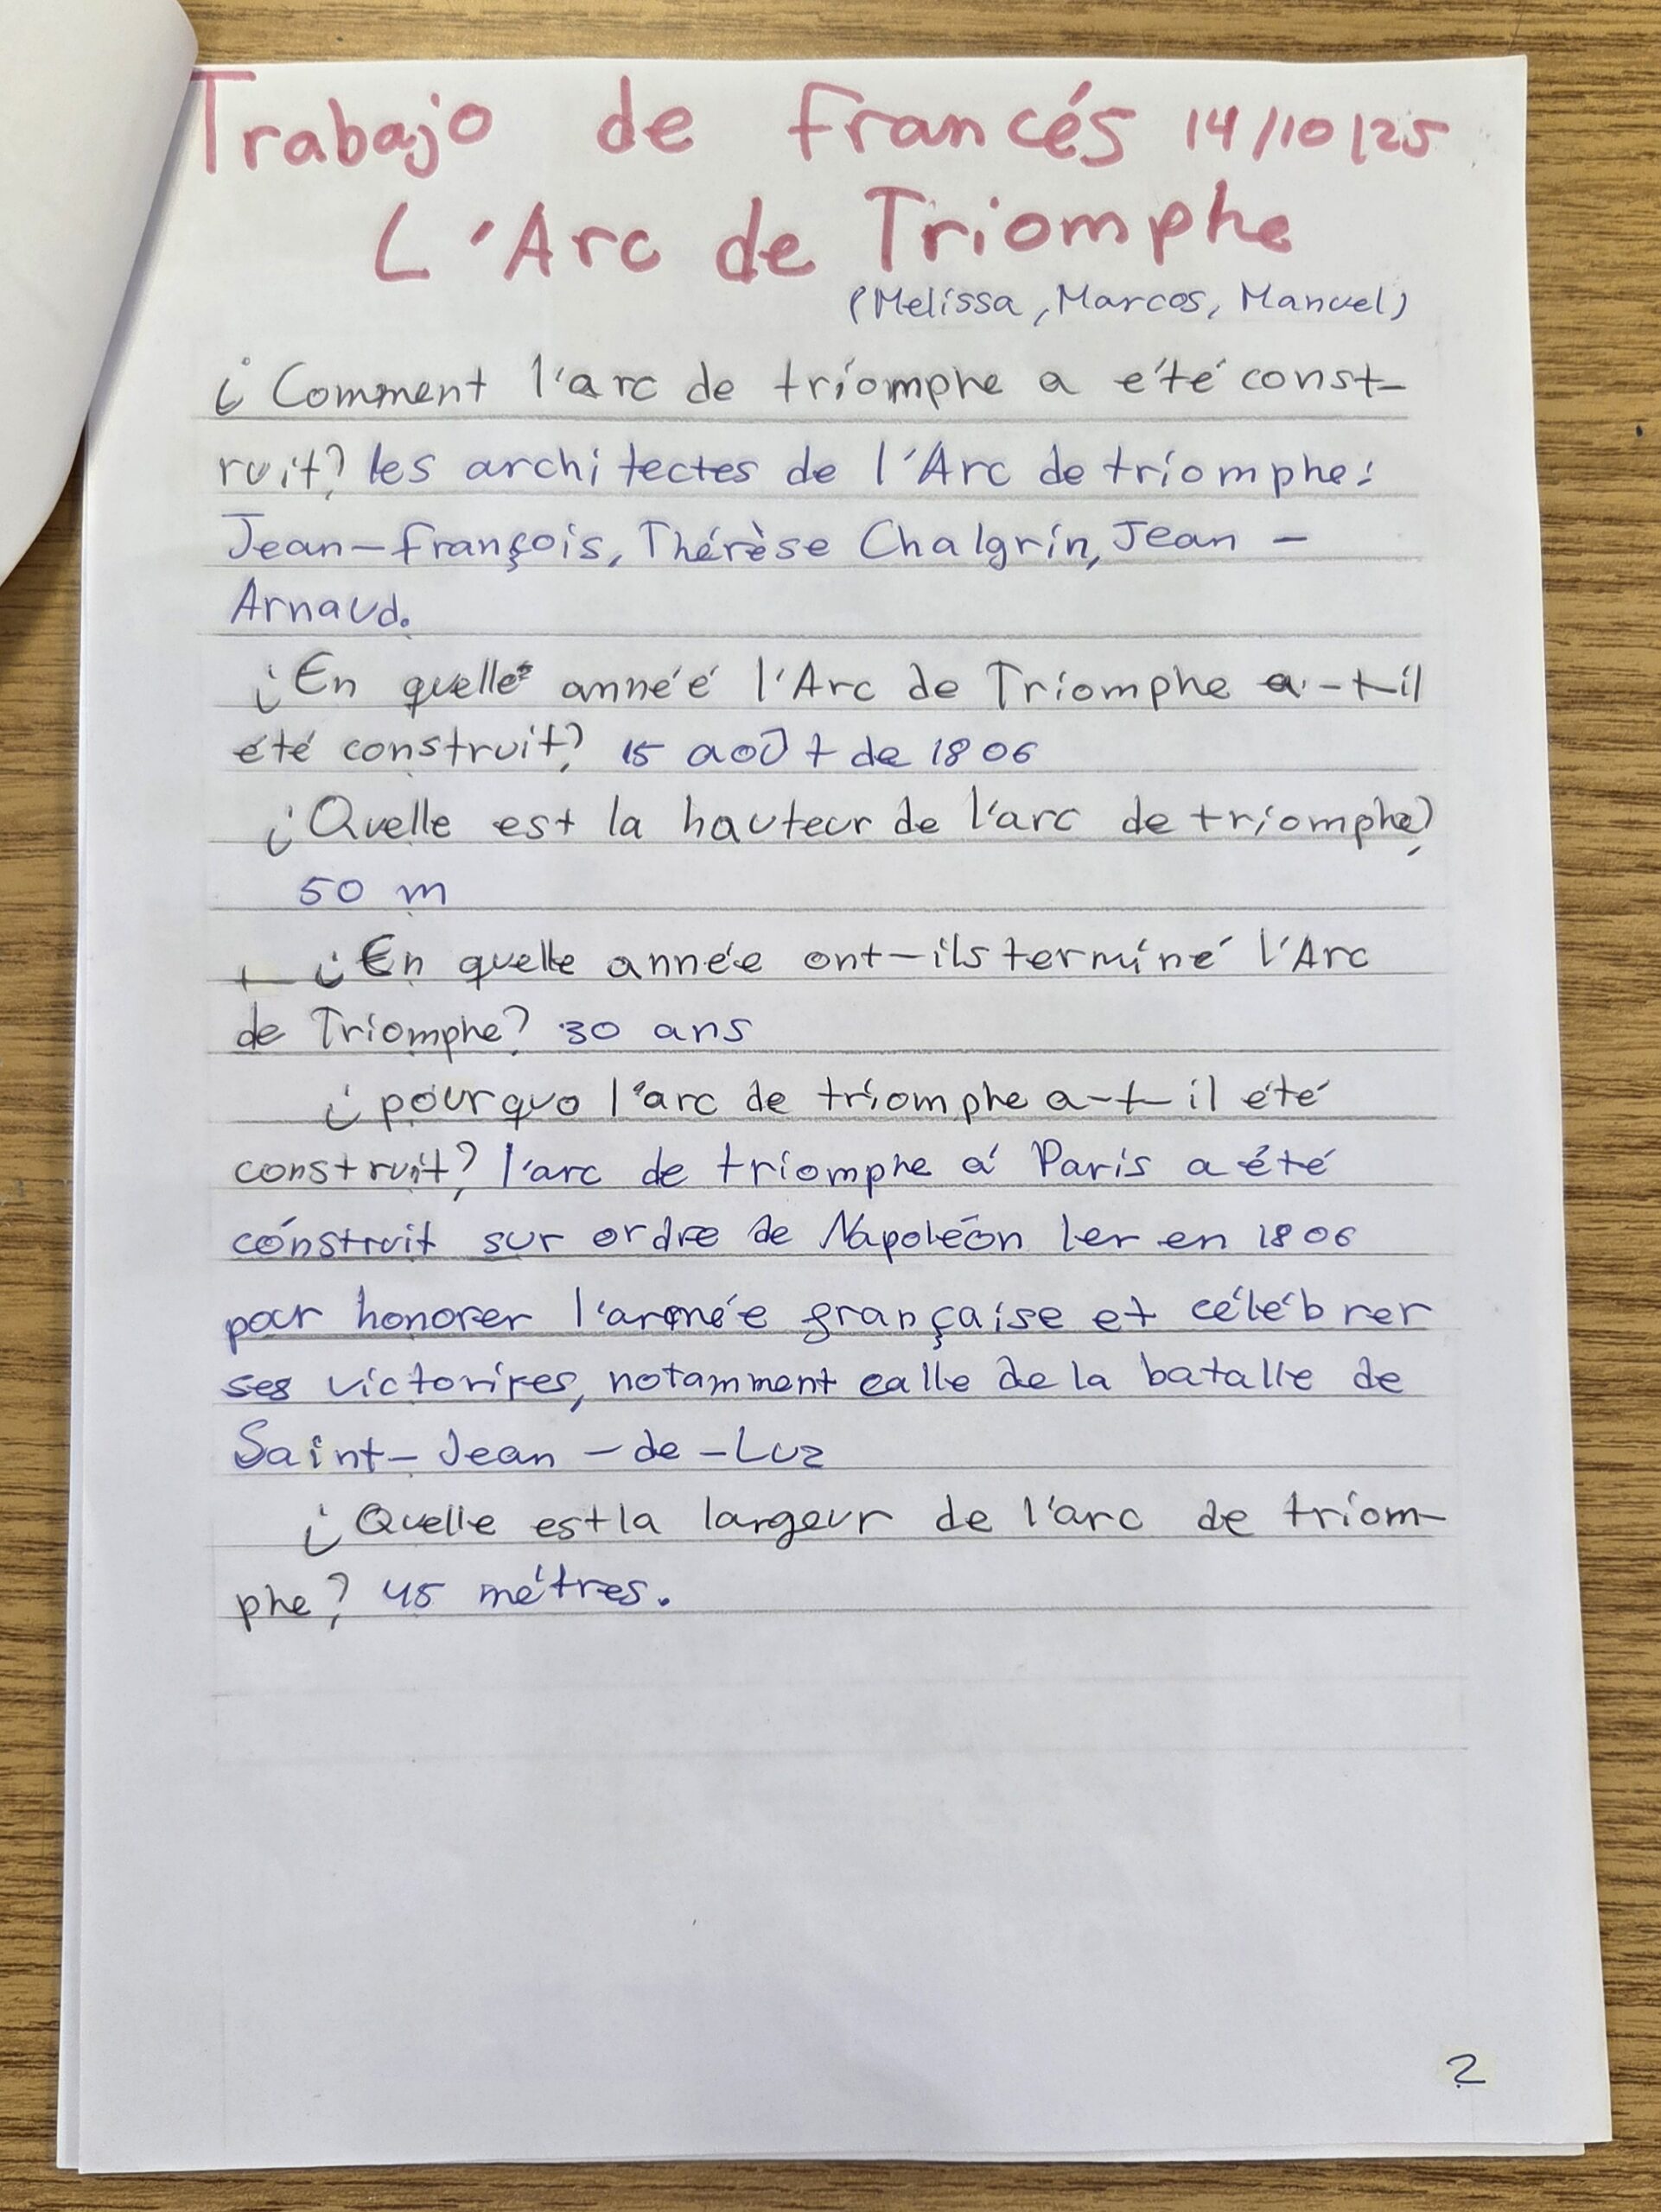 Trabajo de francés 14/10/25
L'Arc de Triomphe
(Melissa, Marcos, Manuel)
¿Comment l'arc de triomphe a été const-
ruit? les architectes de l'Arc de triomphe:
Jean-françois, Thérèse Chalgrin, Jean-
Arnaud.
¿En quelle année l'Arc de Triomphe a-t-il
été construit? 15 août de 1806
¿Quelle est la hauteur de l'arc de triomphe?
50 m
¿En quelle année ont-ils terminé l'Arc
de Triomphe? 30 ans
¿pourquo l'arc de triomphe a-t-il été
construit? l'arc de triomphe á Paris a été
cónstruit sur ordre de Napoléon ler en 1806
pour honorer l'armée française et célébrer
ses victorires, notamment calle de la batalle de
Saint-Jean-de-Luz
¿Quelle est la largeur de l'arc de triom-
phe? 45 métres.
2